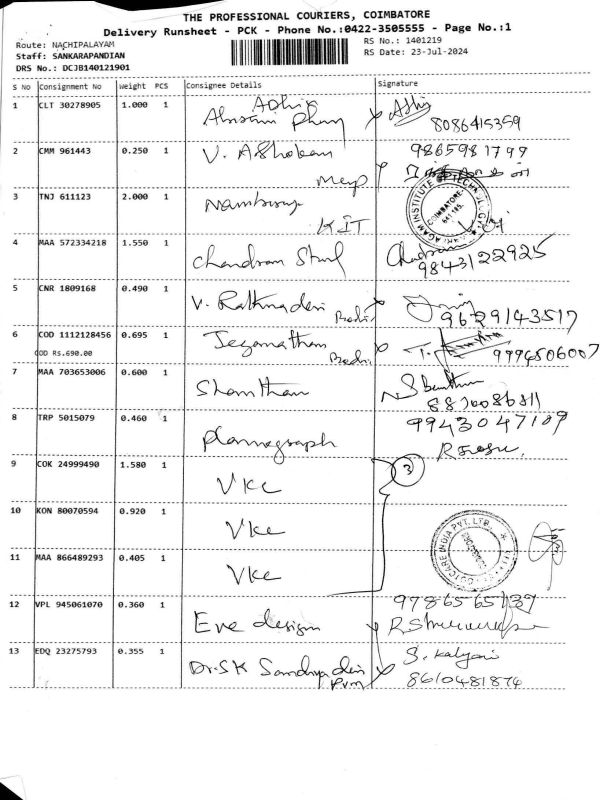 THE PROFESSIONAL COURIERS, COIMBATORE
Delivery Runsheet - PCK - Phone No.:0422-3505555 - Page No.:1
Route: NACHIPALAYAM
RS No.: 1401219
Staff: SANKARAPANDIAN
RS Date: 23-Jul-2024
DRS No.: DCJB140121901
S No Consignment No Weight PCS Consignee Details Signature
1 CLT 30278905 1.000 1
8086415359
2 CMM 961443 0.250 1 V. Ashokan
9865981799
3 TNJ 611123 2.000 1
KIT
INSTITUTE OF TECHNOLOGY
COIMBATORE
4 MAA 572334218 1.550 1 Chandram
9843122925
5 CNR 1809168 0.490 1 V. Rathnaderi
9629143517
6 COD 1112128456 0.695 1 Jeganathan
COD Rs.690.00
9994506007
7 MAA 703653006 0.600 1 Shanthan
8 TRP 5015079 0.460 1 Planograph
9943047109
9 COK 24999490 1.580 1 VKC
3
10 KON 80070594 0.920 1 VKC
11 MAA 866489293 0.405 1 VKC
INDIA PVT. LTD.
12 VPL 945061070 0.360 1 Eve design
9786565137
13 EDQ 23275793 0.355 1 Dr. SK
S. Kalyani
8610481874